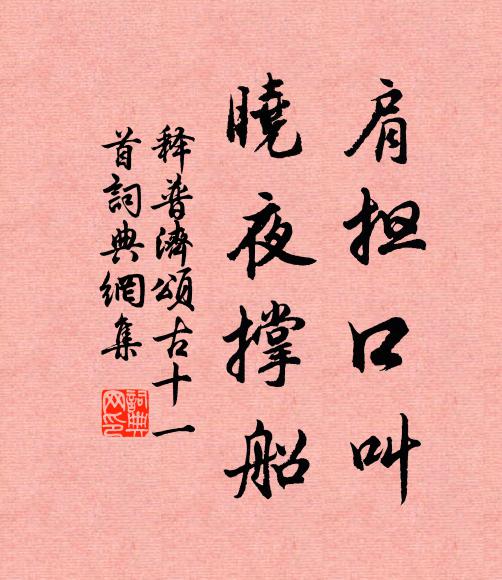 肩担口叫
曉夜撐船
释普濟頌古十一
首詞典網集
詞典
网印